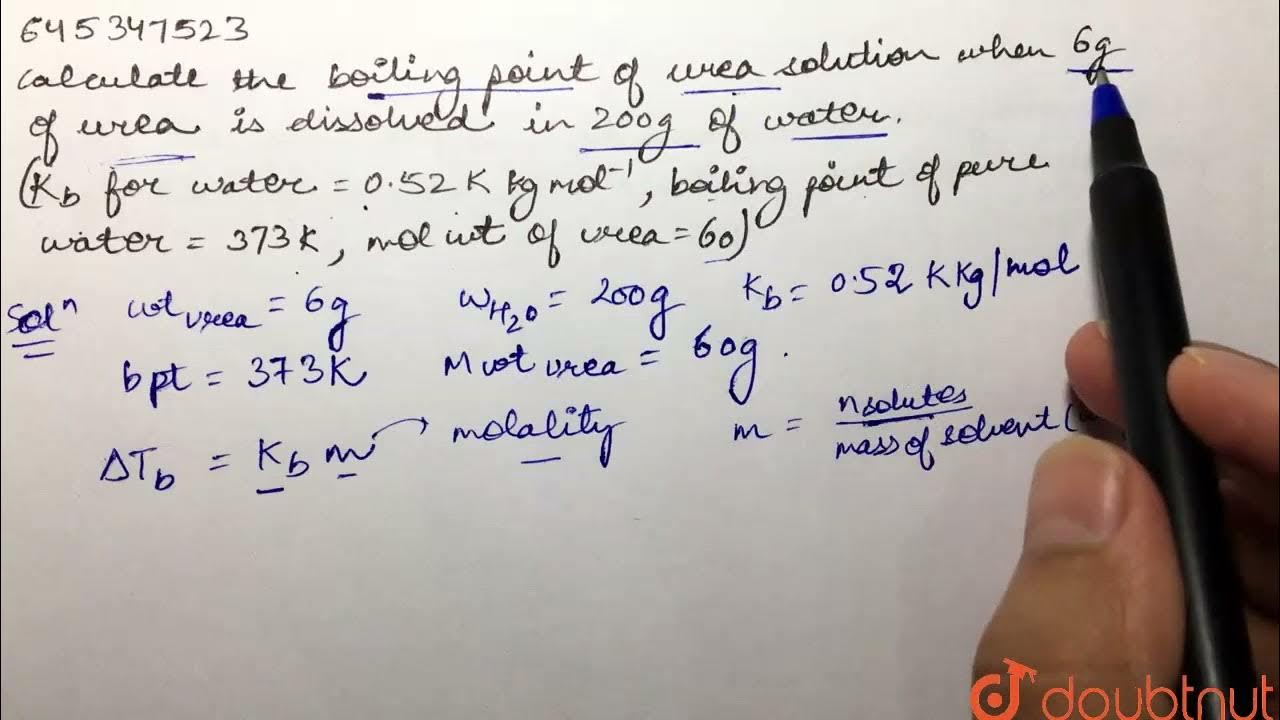 645347523
calculate the boiling point of urea solution when 6g
of urea is dissolved in 200g of water.
(Kb for water = 0.52 K kg mol⁻¹, boiling point of pure
water = 373K, mol wt of urea = 60)
Solⁿ wt urea = 6g W H₂O = 200g Kb = 0.52 K Kg/mol
b pt = 373K M wt urea = 60g.
ΔTb = Kb m → molality m = n solutes / mass of solvent (
doubtnut